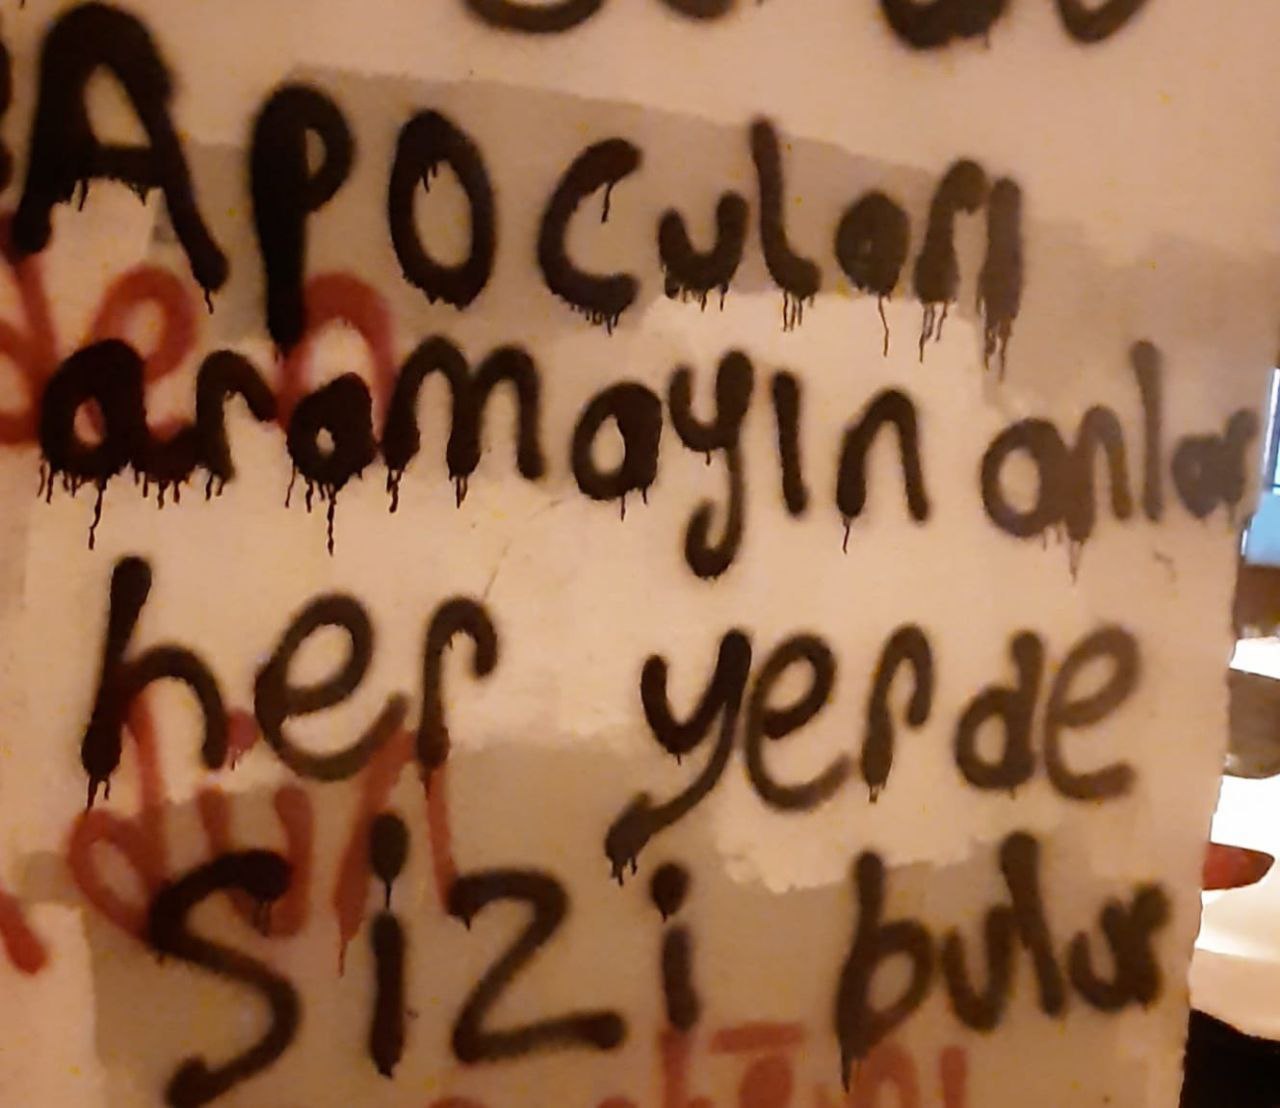 APOCULARI
aramayın onlar
her yerde
sizi bulur